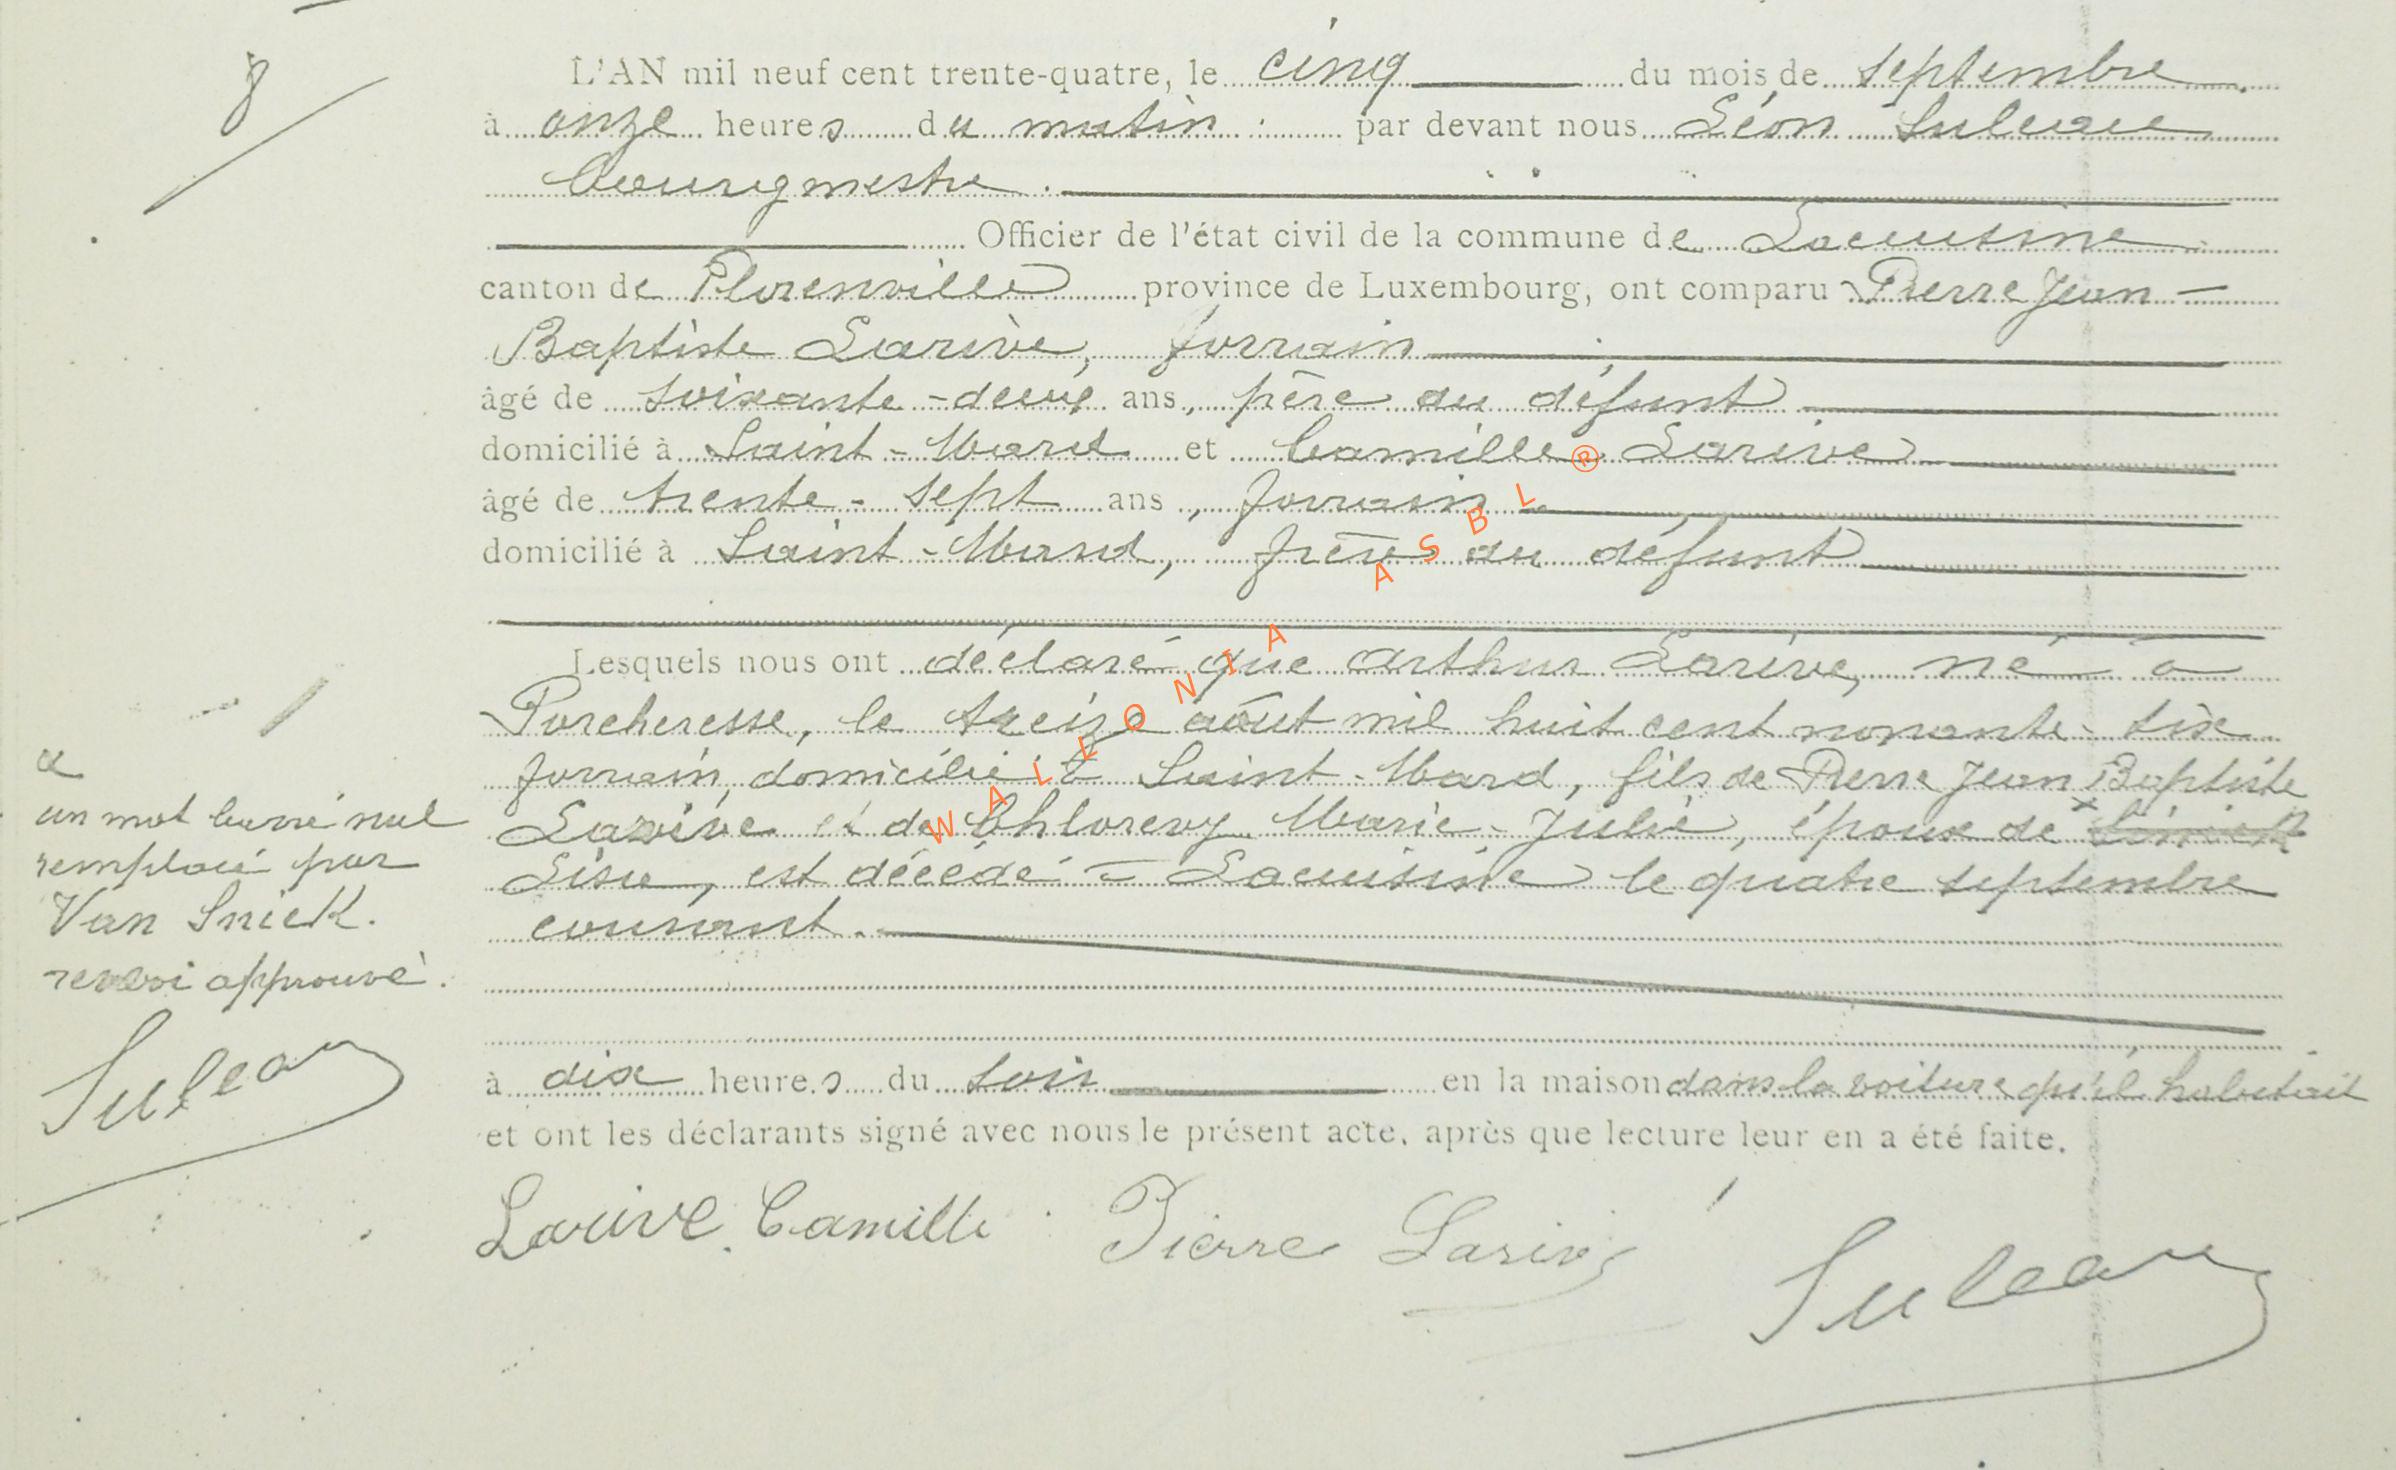 8
L'AN mil neuf cent trente-quatre, le cinq du mois de septembre
à onze heures du matin par devant nous Léon Suleau
bourgmestre
Officier de l'état civil de la commune de Lacuisine
canton de Florenville province de Luxembourg, ont comparu Pierre Jean
Baptiste Larive, forain
âgé de soixante-deux ans, père du défunt
domicilié à Saint-Mard et Camille Larive
âgé de trente-sept ans, forrain
domicilié à Saint-Mard, frère du défunt
Lesquels nous ont déclaré que Arthur Larive, né à
Porcheresse, le treize août mil huit cent nonante-six
forrain, domicilié à Saint-Mard, fils de Pierre Jean Baptiste
Larive et de Marie-Julie, époux de
Lisa, est décédé à Lacuisine le quatre septembre
courant.
à dix heures du soir en la maison dans la voiture qu'il habitait
et ont les déclarants signé avec nous le présent acte, après que lecture leur en a été faite.
un mot barré nul
remplacé par
Van Snick.
renvoi approuvé.
Suleau
Larive Camille Pierre Larive
Suleau
WALLONIA ASBL ®